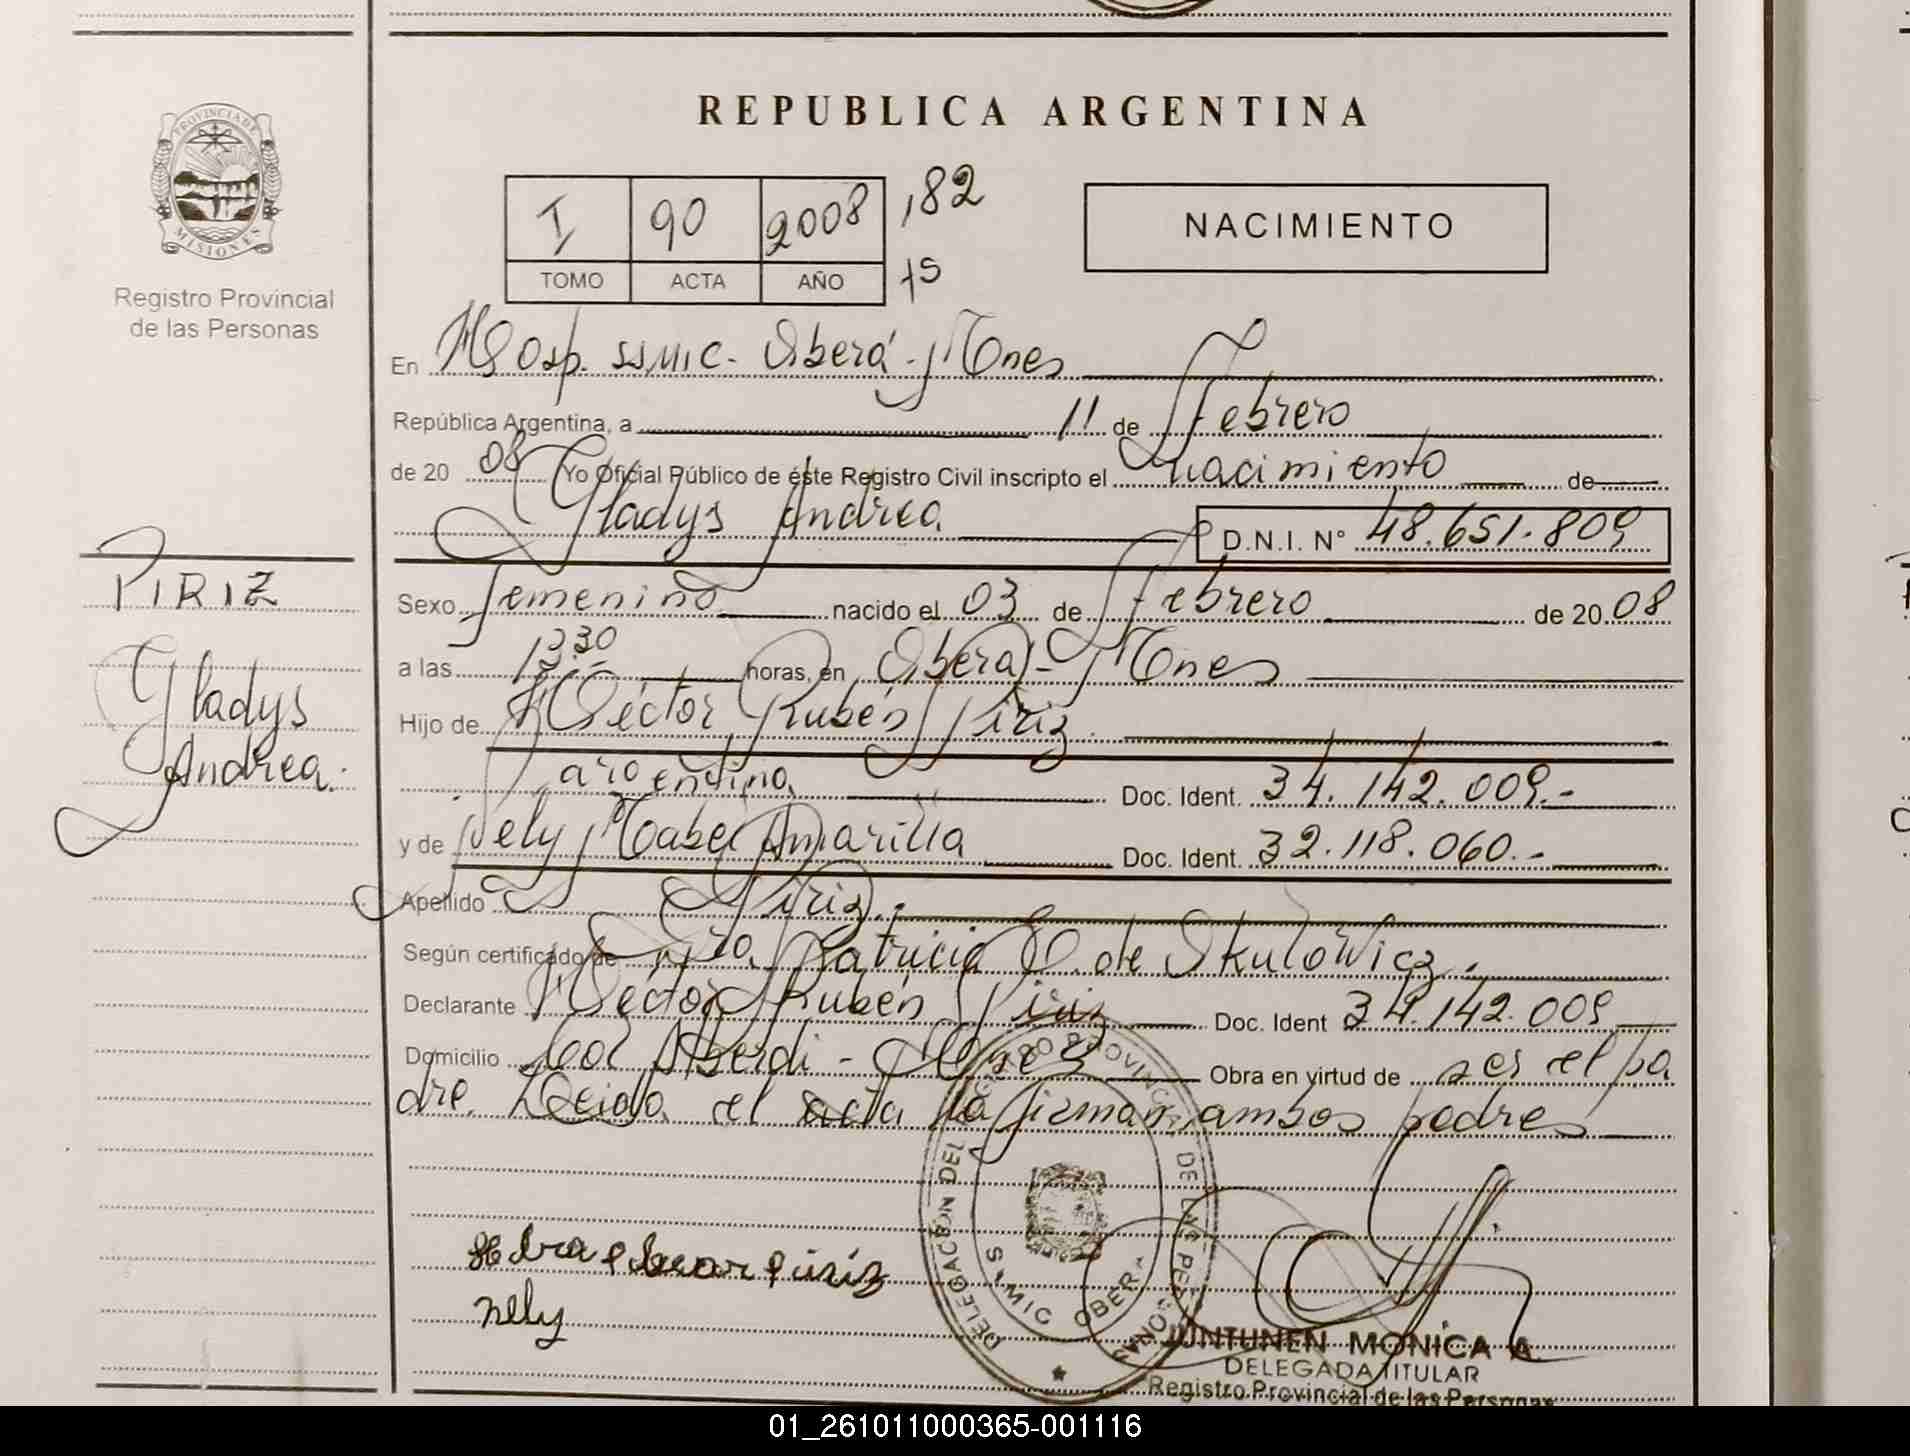 PROVINCIA DE
MISIONES
Registro Provincial
de las Personas
PIRIZ
Gladys
Andrea.
REPUBLICA ARGENTINA
I 90 2008 ,82
TOMO ACTA AÑO 15
NACIMIENTO
En Hosp. SSMIC - Oberá - Mnes
República Argentina, a 11 de Febrero
de 20 08 Yo Oficial Público de éste Registro Civil inscripto el nacimiento de
Gladys Andrea D.N.I. N° 48.651.809
Sexo femenino nacido el 03 de Febrero de 20 08
a las 13.30 horas, en Oberá - Mnes
Hijo de Héctor Rubén Piriz
argentina Doc. Ident. 34.142.009.-
y de Nely Mabel Amarilla Doc. Ident. 32.118.060.-
Apellido Piriz.-
Según certificado de Dra. Patricia E. de Skulowicz.
Declarante Héctor Rubén Piriz Doc. Ident 34.142.009
Domicilio Col Alberdi - Mnes Obra en virtud de ser el pa
dre. Leida el acta la firman ambos padres
piriz
nely
DELEGACION DEL REGISTRO PROVINCIAL DE LAS PERSONAS
SAMIC OBERA
JUNTUNEN MONICA A
DELEGADA TITULAR
Registro Provincial de las Personas
01_261011000365-001116